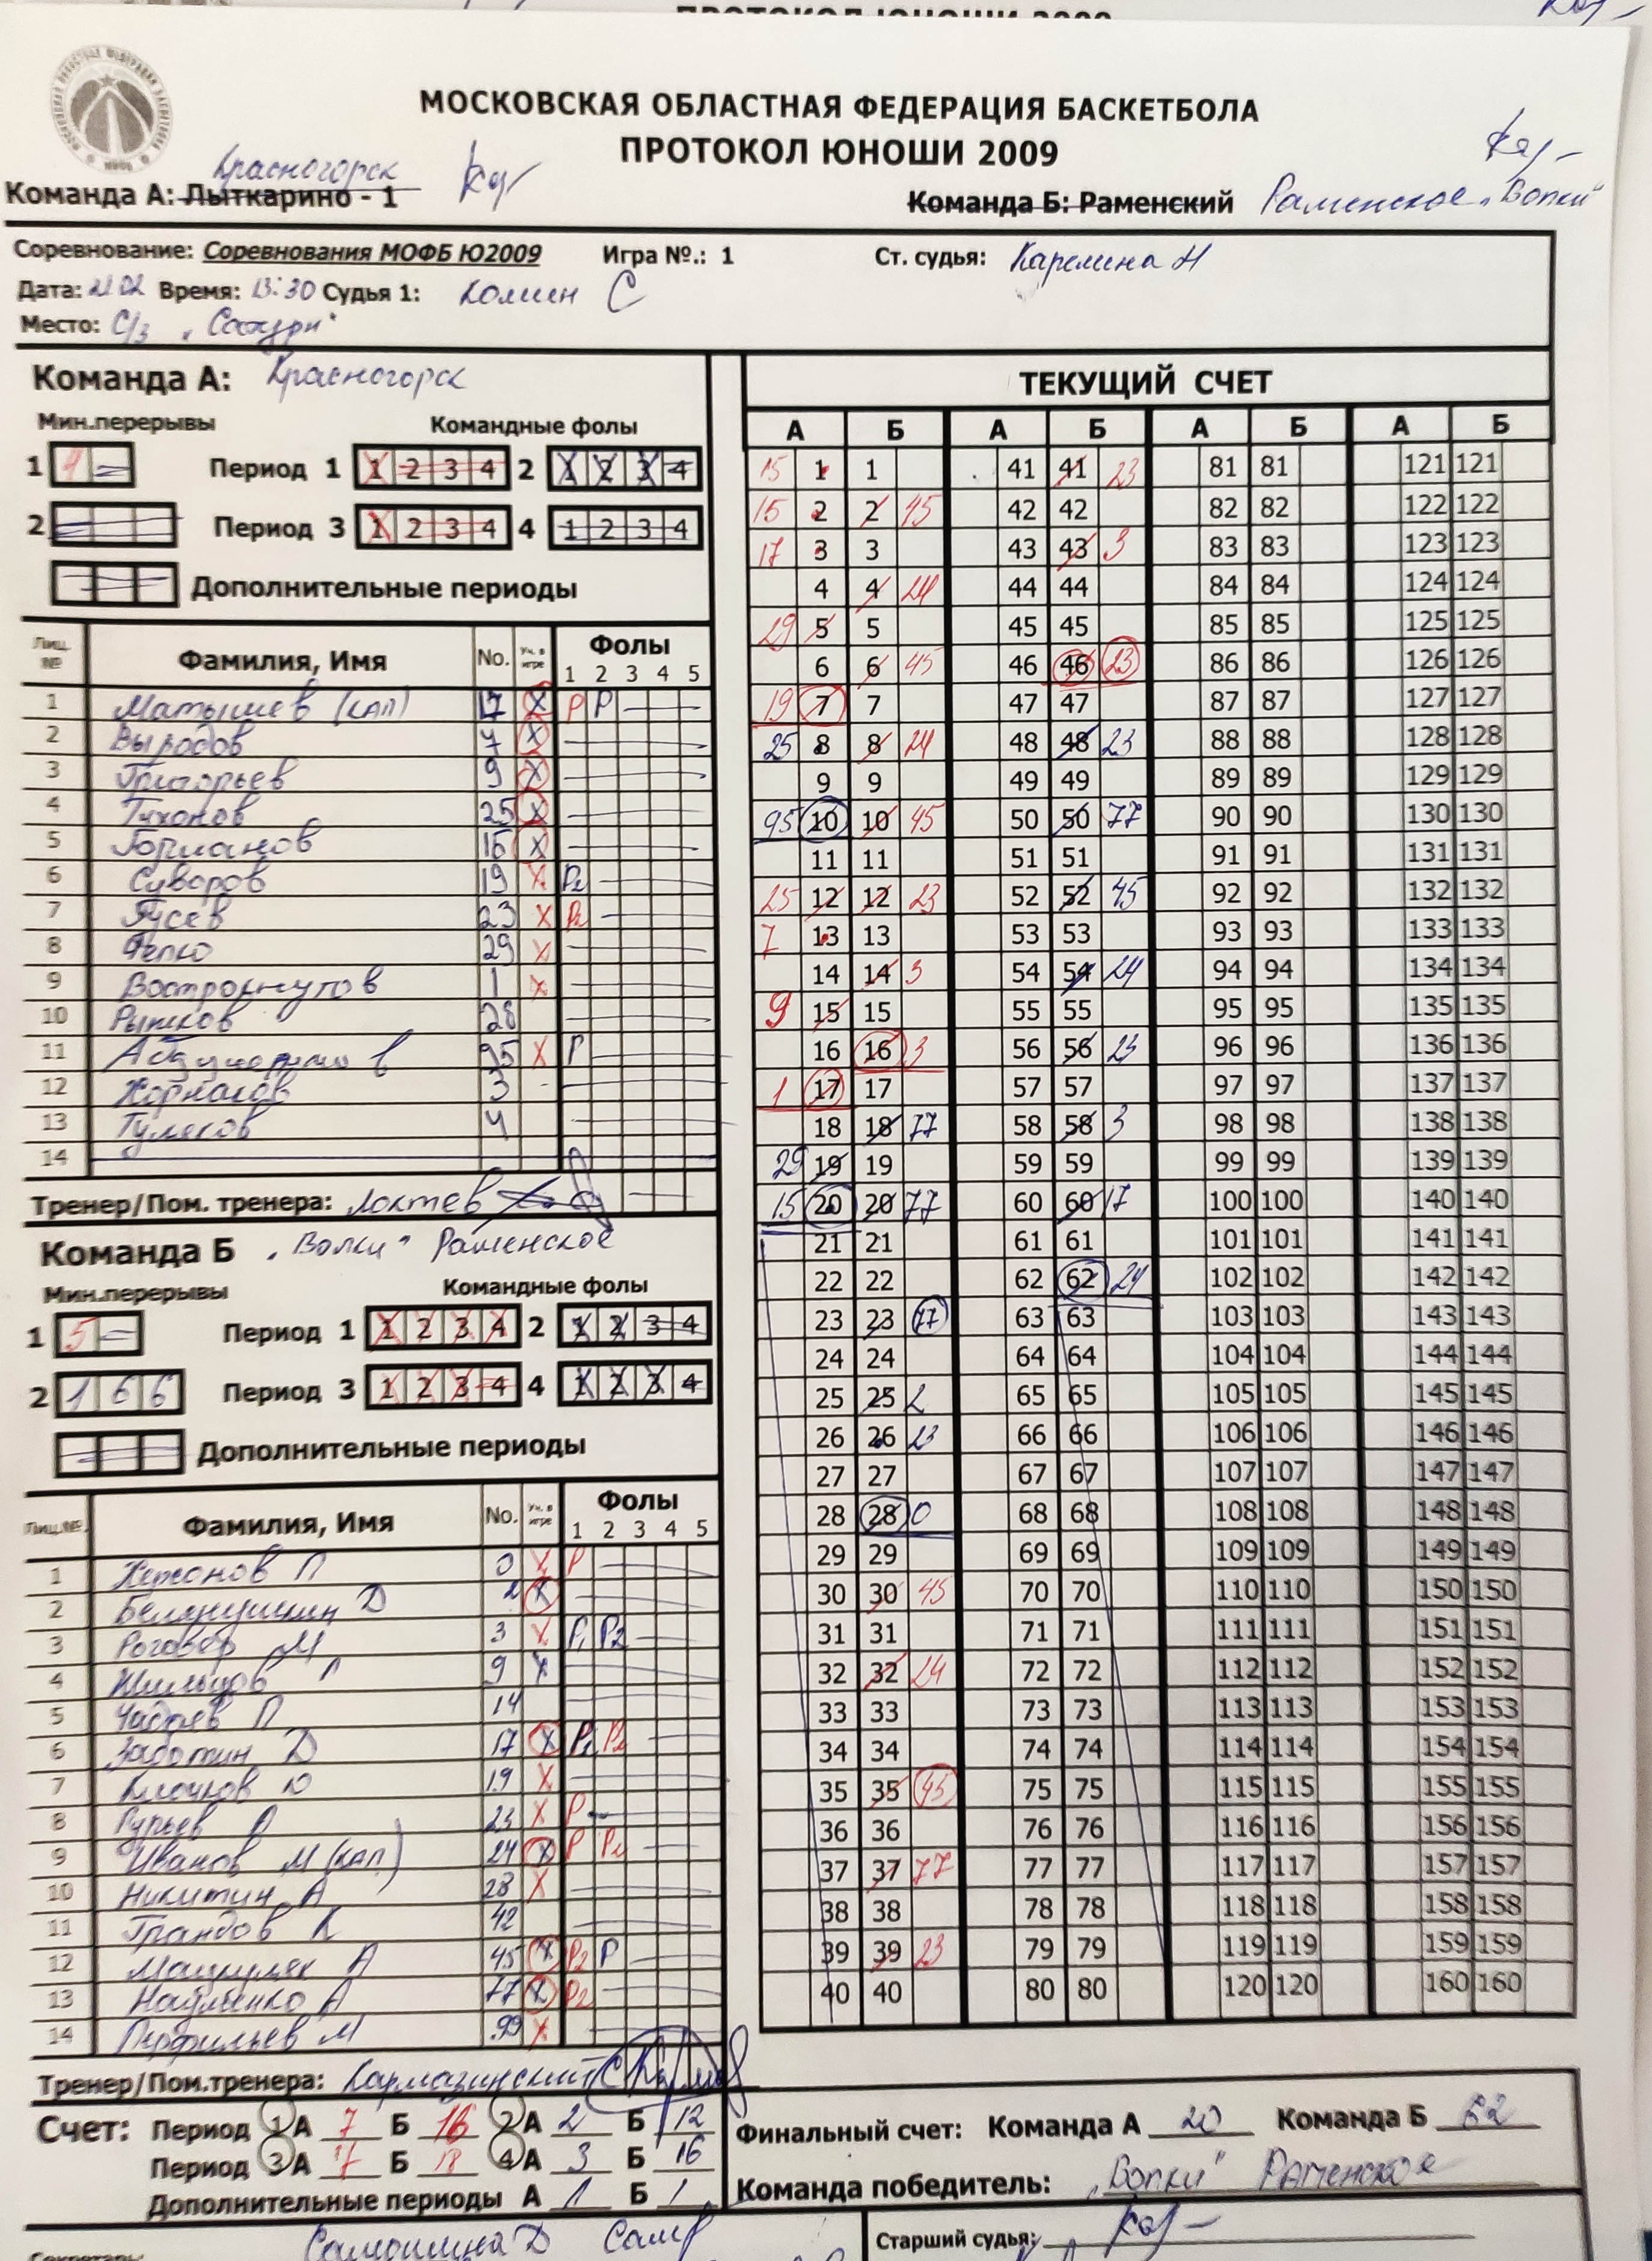 МОСКОВСКАЯ ОБЛАСТНАЯ ФЕДЕРАЦИЯ БАСКЕТБОЛА
ПРОТОКОЛ ЮНОШИ 2009
Красногорск
Команда А: Лыткарино - 1
Команда Б: Раменский Раменское "Волки"
Соревнование: Соревнования МОФБ Ю2009 Игра №.: 1 Ст. судья: Карелина Н
Дата: 21.02 Время: 13:30 Судья 1: Комин С
Место: С/з
Команда А: Красногорск
Мин.перерывы Командные фолы
1 Период 1 1 2 3 4 2 1 2 3 4
2 Период 3 1 2 3 4 4 1 2 3 4
Дополнительные периоды
Лиц. № Фамилия, Имя No. Уч. в игре Фолы 1 2 3 4 5
1 Матышев (кап) 17 X P P
2 Выродов 7 X
3 Григорьев 9 X
4 Тихонов 25 X
5 15 X
6 Суворов 19 X P2
7 Гусев 23 X P2
8 29 X
9 Вострокнутов 1 X
10 Рыжков 28
11 95 X P
12 3
13 4
14
Тренер/Пом. тренера: Локтев
Команда Б "Волки" Раменское
Мин.перерывы Командные фолы
1 5 Период 1 1 2 3 4 2 1 2 3 4
2 1 6 6 Период 3 1 2 3 4 4 1 2 3 4
Дополнительные периоды
Лиц.№. Фамилия, Имя No. Уч. в игре Фолы 1 2 3 4 5
1 П 0 X P
2 Д 2 X
3 М 3 X P1 P2
4 9 X
5 П 14
6 Заботин Д 17 X P2 P2
7 Клочков Ю 19 X
8 Гурьев 23 X P
9 Иванов М (кап) 24 X P P2
10 Никитин А 28 X
11 42
12 А 45 X P2 P
13 Науменко А 77 X P2
14 Перфильев М 99 X
Тренер/Пом.тренера: Кармазинский С
Счет: Период 1 А 7 Б 16 2 А 2 Б 12
Период 3 А 7 Б 18 4 А 3 Б 16
Дополнительные периоды А Б
ТЕКУЩИЙ СЧЕТ
А Б А Б А Б А Б
15 1 1 41 41 23 81 81 121 121
15 2 2 45 42 42 82 82 122 122
17 3 3 43 43 3 83 83 123 123
4 4 24 44 44 84 84 124 124
29 5 5 45 45 85 85 125 125
6 6 45 46 46 23 86 86 126 126
19 7 7 47 47 87 87 127 127
25 8 8 24 48 48 23 88 88 128 128
9 9 49 49 89 89 129 129
95 10 10 45 50 50 77 90 90 130 130
11 11 51 51 91 91 131 131
25 12 12 23 52 52 45 92 92 132 132
7 13 13 53 53 93 93 133 133
14 14 3 54 54 24 94 94 134 134
9 15 15 55 55 95 95 135 135
16 16 3 56 56 23 96 96 136 136
1 17 17 57 57 97 97 137 137
18 18 77 58 58 3 98 98 138 138
29 19 19 59 59 99 99 139 139
15 20 20 77 60 60 17 100 100 140 140
21 21 61 61 101 101 141 141
22 22 62 62 24 102 102 142 142
23 23 77 63 63 103 103 143 143
24 24 64 64 104 104 144 144
25 25 2 65 65 105 105 145 145
26 26 23 66 66 106 106 146 146
27 27 67 67 107 107 147 147
28 28 0 68 68 108 108 148 148
29 29 69 69 109 109 149 149
30 30 45 70 70 110 110 150 150
31 31 71 71 111 111 151 151
32 32 24 72 72 112 112 152 152
33 33 73 73 113 113 153 153
34 34 74 74 114 114 154 154
35 35 45 75 75 115 115 155 155
36 36 76 76 116 116 156 156
37 37 77 77 77 117 117 157 157
38 38 78 78 118 118 158 158
39 39 23 79 79 119 119 159 159
40 40 80 80 120 120 160 160
Финальный счет: Команда А 20 Команда Б 62
Команда победитель: "Волки" Раменское
Самошина Д
Старший судья: